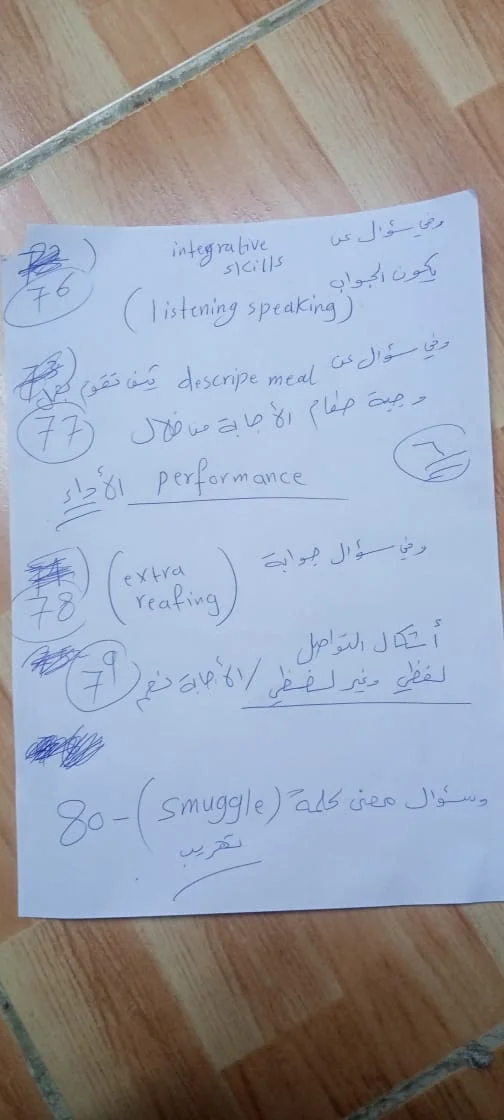 76) وفي سؤال عن integrative skills
يكون الجواب
(listening speaking)
77 وفي سؤال عن descripe meal كيف تقوم
وجبة طعام الأجابة من خلال
الأداء performance
78 وفي سؤال جوابة (extra reafing)
79 أشكال التواصل
لفظي وغير لفظي / الأجابة نعم
80 - (smuggle) وسؤال معنى كلمة
تهريب